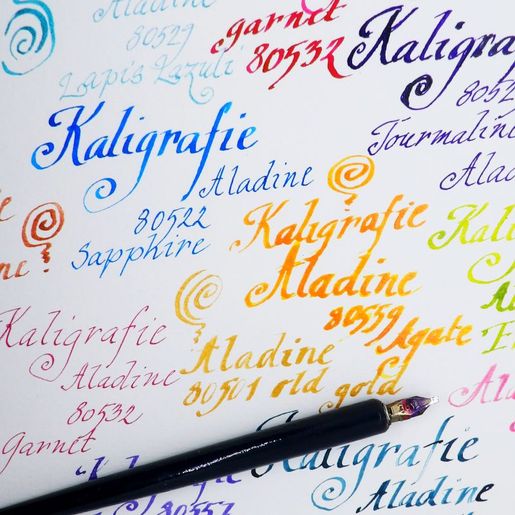 Aladine
80529
Lapis Lazuli
garnet
80532
Kaligra
8052
Tourmaline
Alad
Kaligrafie
Aladine
80522
Sapphire
Kaligrafie
Aladine
80539
Agate
Kali
Kaligrafie
Aladine
80532
garnet
Aladine
80501 old gold
Kaligrafie
Aladine
80557